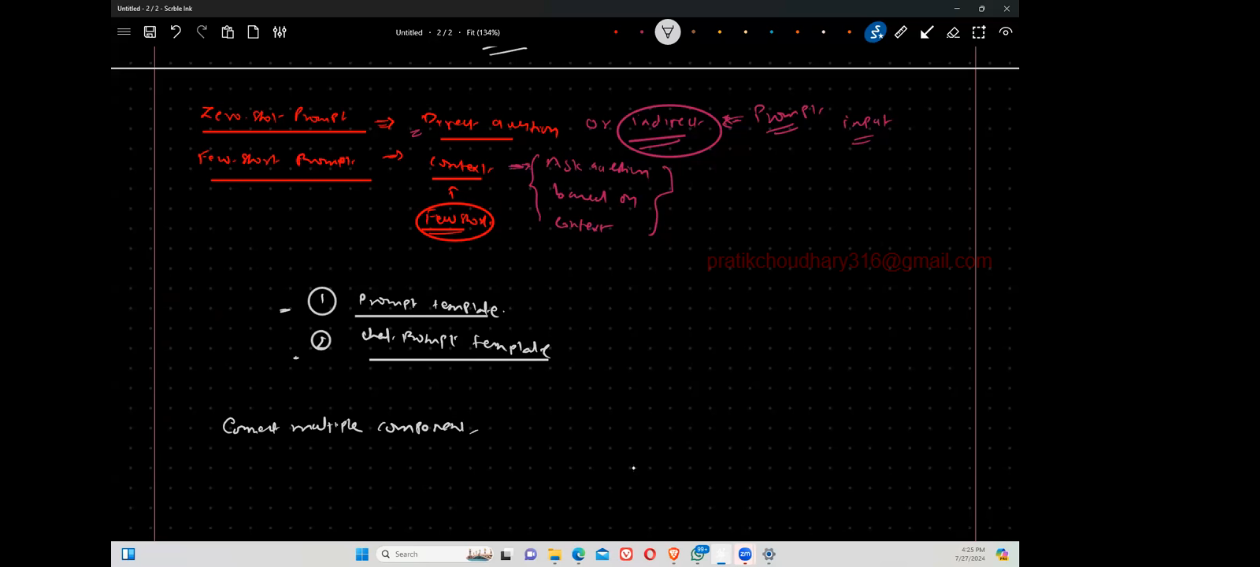 Untitled - 2 / 2 - Scrible Ink
Untitled • 2 / 2 • Fit (134%)
Zero shot Prompt ⇒ Direct question or indirect ⇐ Prompt input
Few short Prompt → Context ⇒ { Ask question
based on
Context }
↑
Few shot
pratikchoudhary316@gmail.com
- ① Prompt template.
- ② Chat Prompt template
Connect multiple component
Search
99+
zm
4:25 PM
7/27/2024